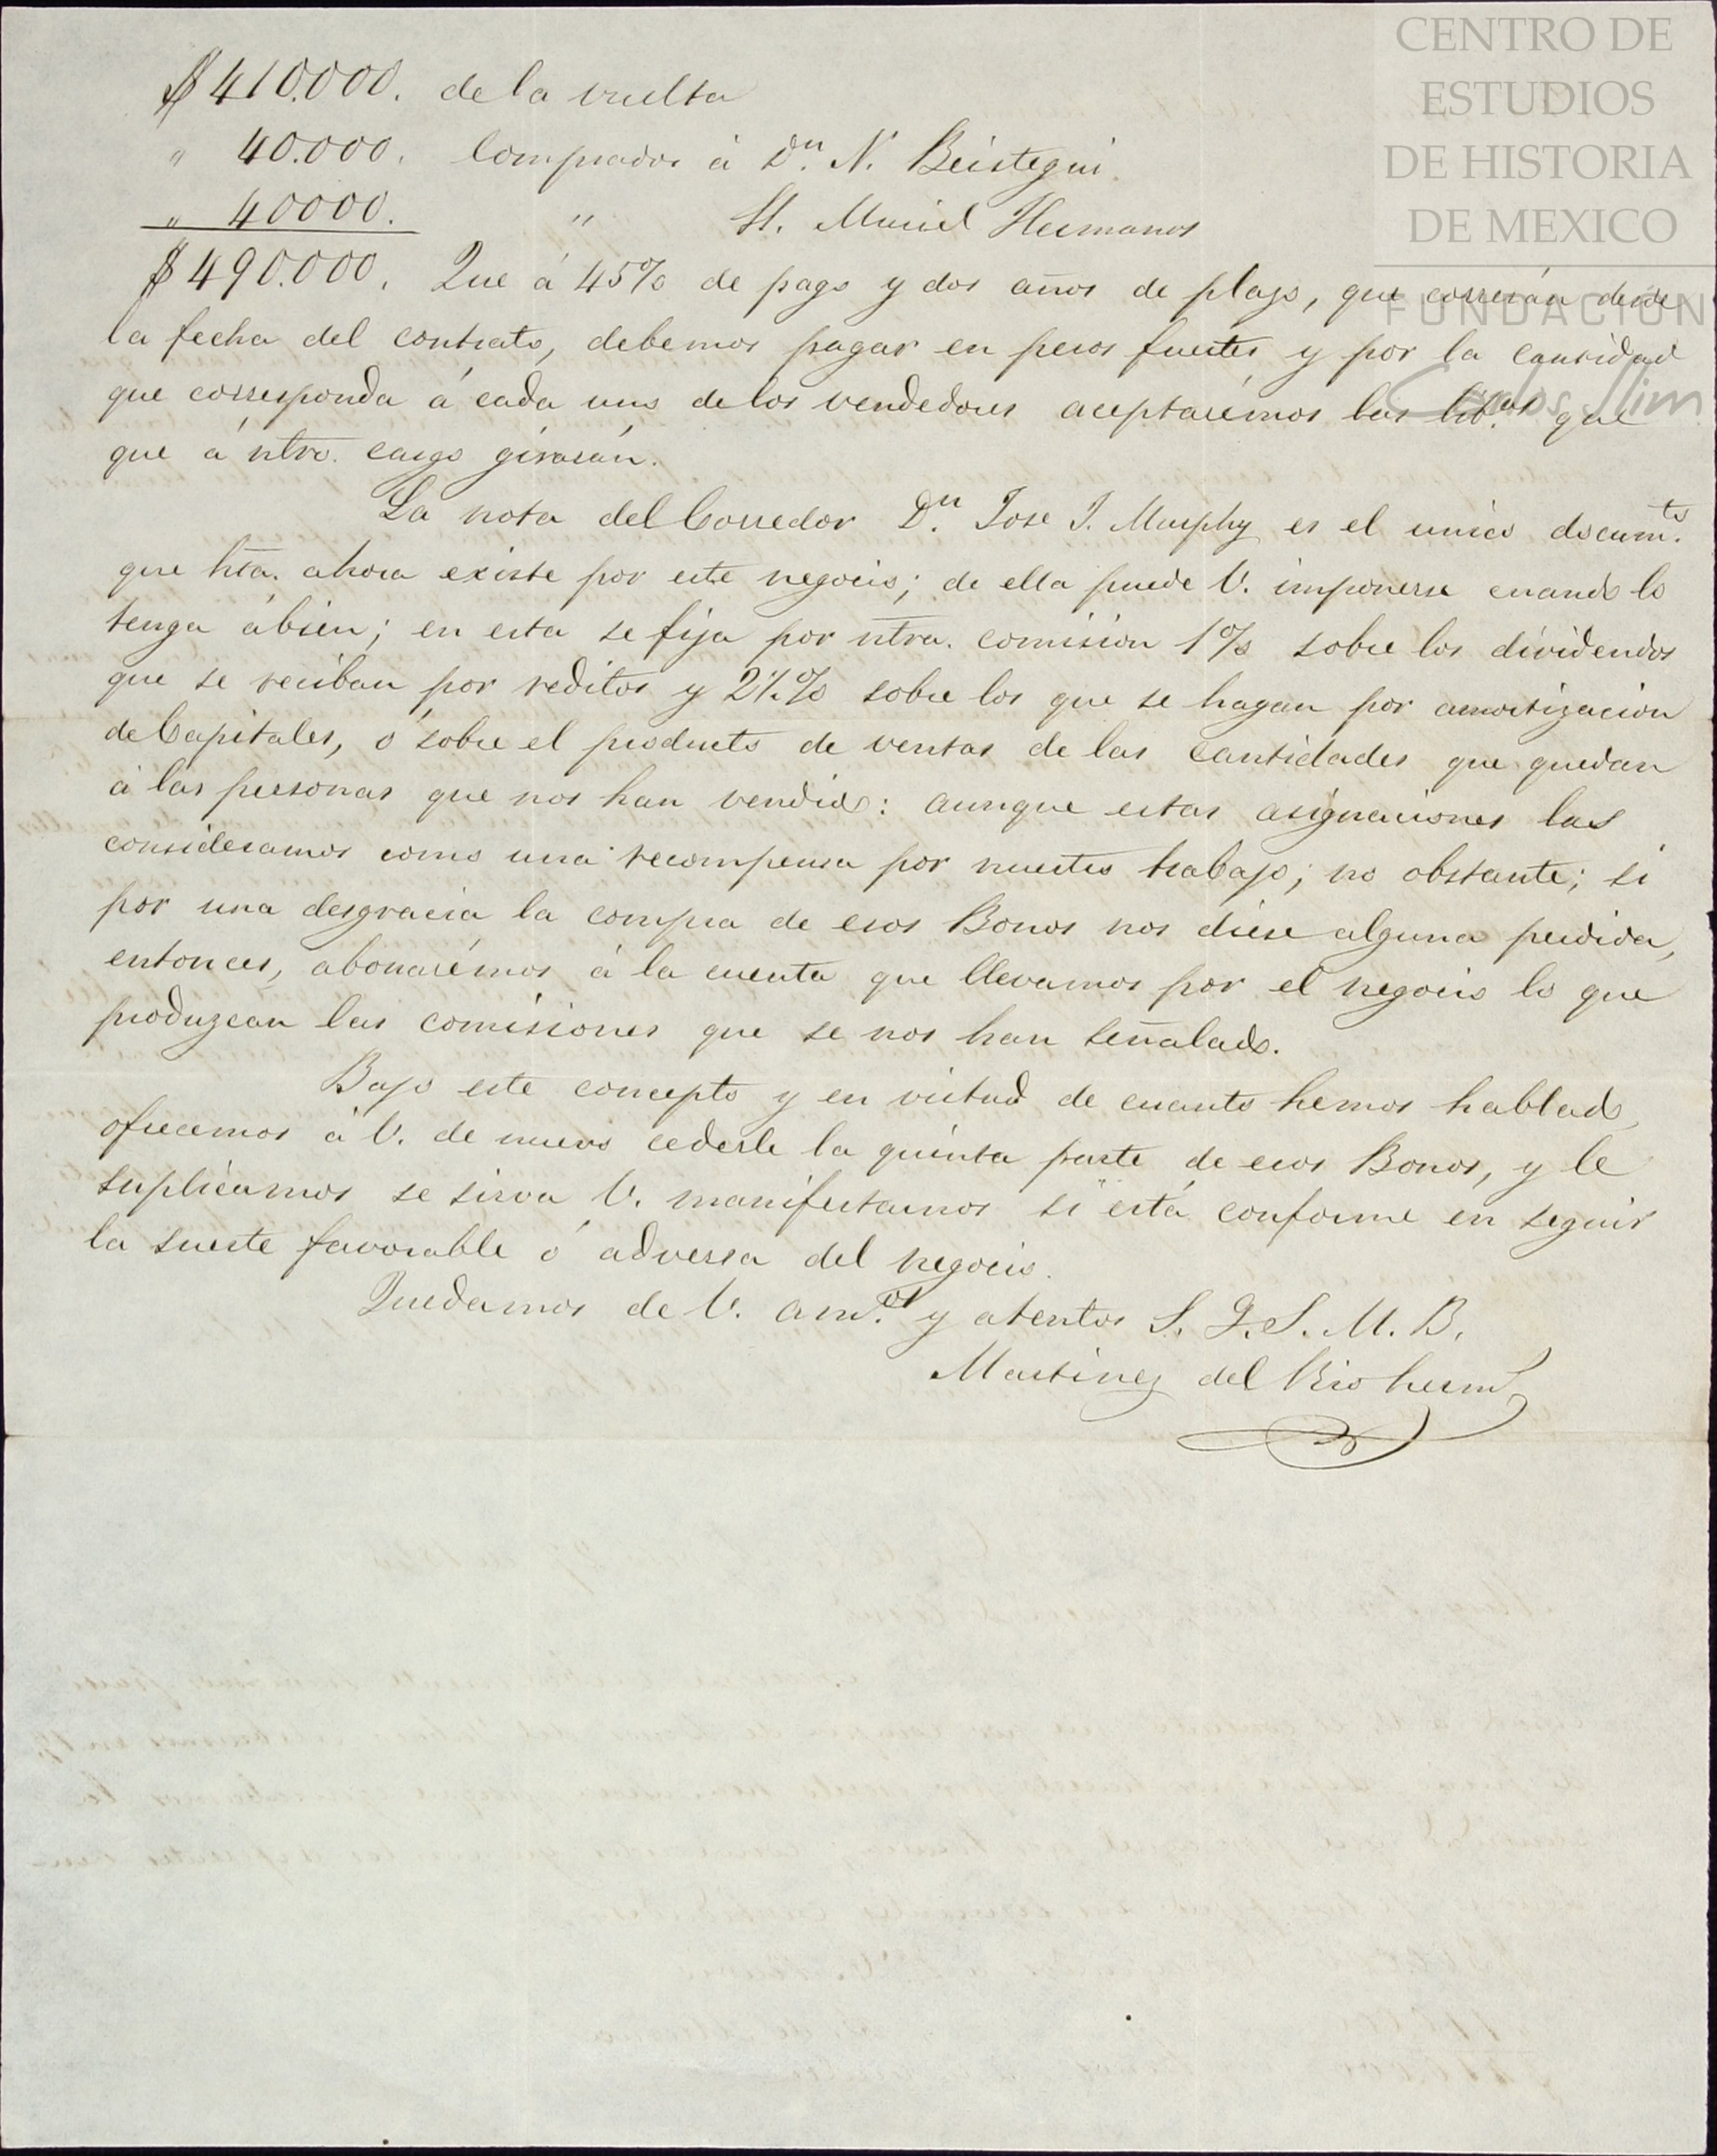 CENTRO DE
ESTUDIOS
DE HISTORIA
DE MEXICO
FUNDACIÓN
Carlos Slim
$ 410.000. de la vuelta
" 40.000. Comprados á Dn. N. Beistegui.
" 40000. " H. Muriel Hermanos
$ 490.000. Que á 45% de pago y dos años de plazo, que correrán desde
la fecha del contrato, debemos pagar en pesos fuertes y por la cantidad
que corresponda á cada uno de los vendedores aceptarémos las lib.as que
que á ntro. cargo girarán.
La nota del Corredor Dn. Jose J. Murphy es el unico docum.to
que hta. ahora existe por este negocio; de ella puede V. imponerse cuando lo
tenga ábien; en esta se fija por ntra. comision 1% sobre los dividendos
que se reciban por reditos y 2½% sobre los que se hagan por amortizacion
de Capitales, ó sobre el producto de ventas de las cantidades que quedan
á las personas que nos han vendido: aunque estas asignaciones las
consideramos como una recompensa por nuestro trabajo; no obstante; si
por una desgracia la compra de esos Bonos nos diese alguna perdida,
entonces, abonarémos á la cuenta que llevamos por el negocio lo que
produzcan las comisiones que se nos han señalado.
Bajo este concepto y en virtud de cuanto hemos hablado,
ofrecemos á V. de nuevo cederle la quinta parte de esos Bonos, y le
suplicamos se sirva V. manifestarnos si está conforme en seguir
la suerte favorable ó adversa del negocio.
Quedamos de V. am.os y atentos S. Q. S. M. B.
Martinez del Rio herms